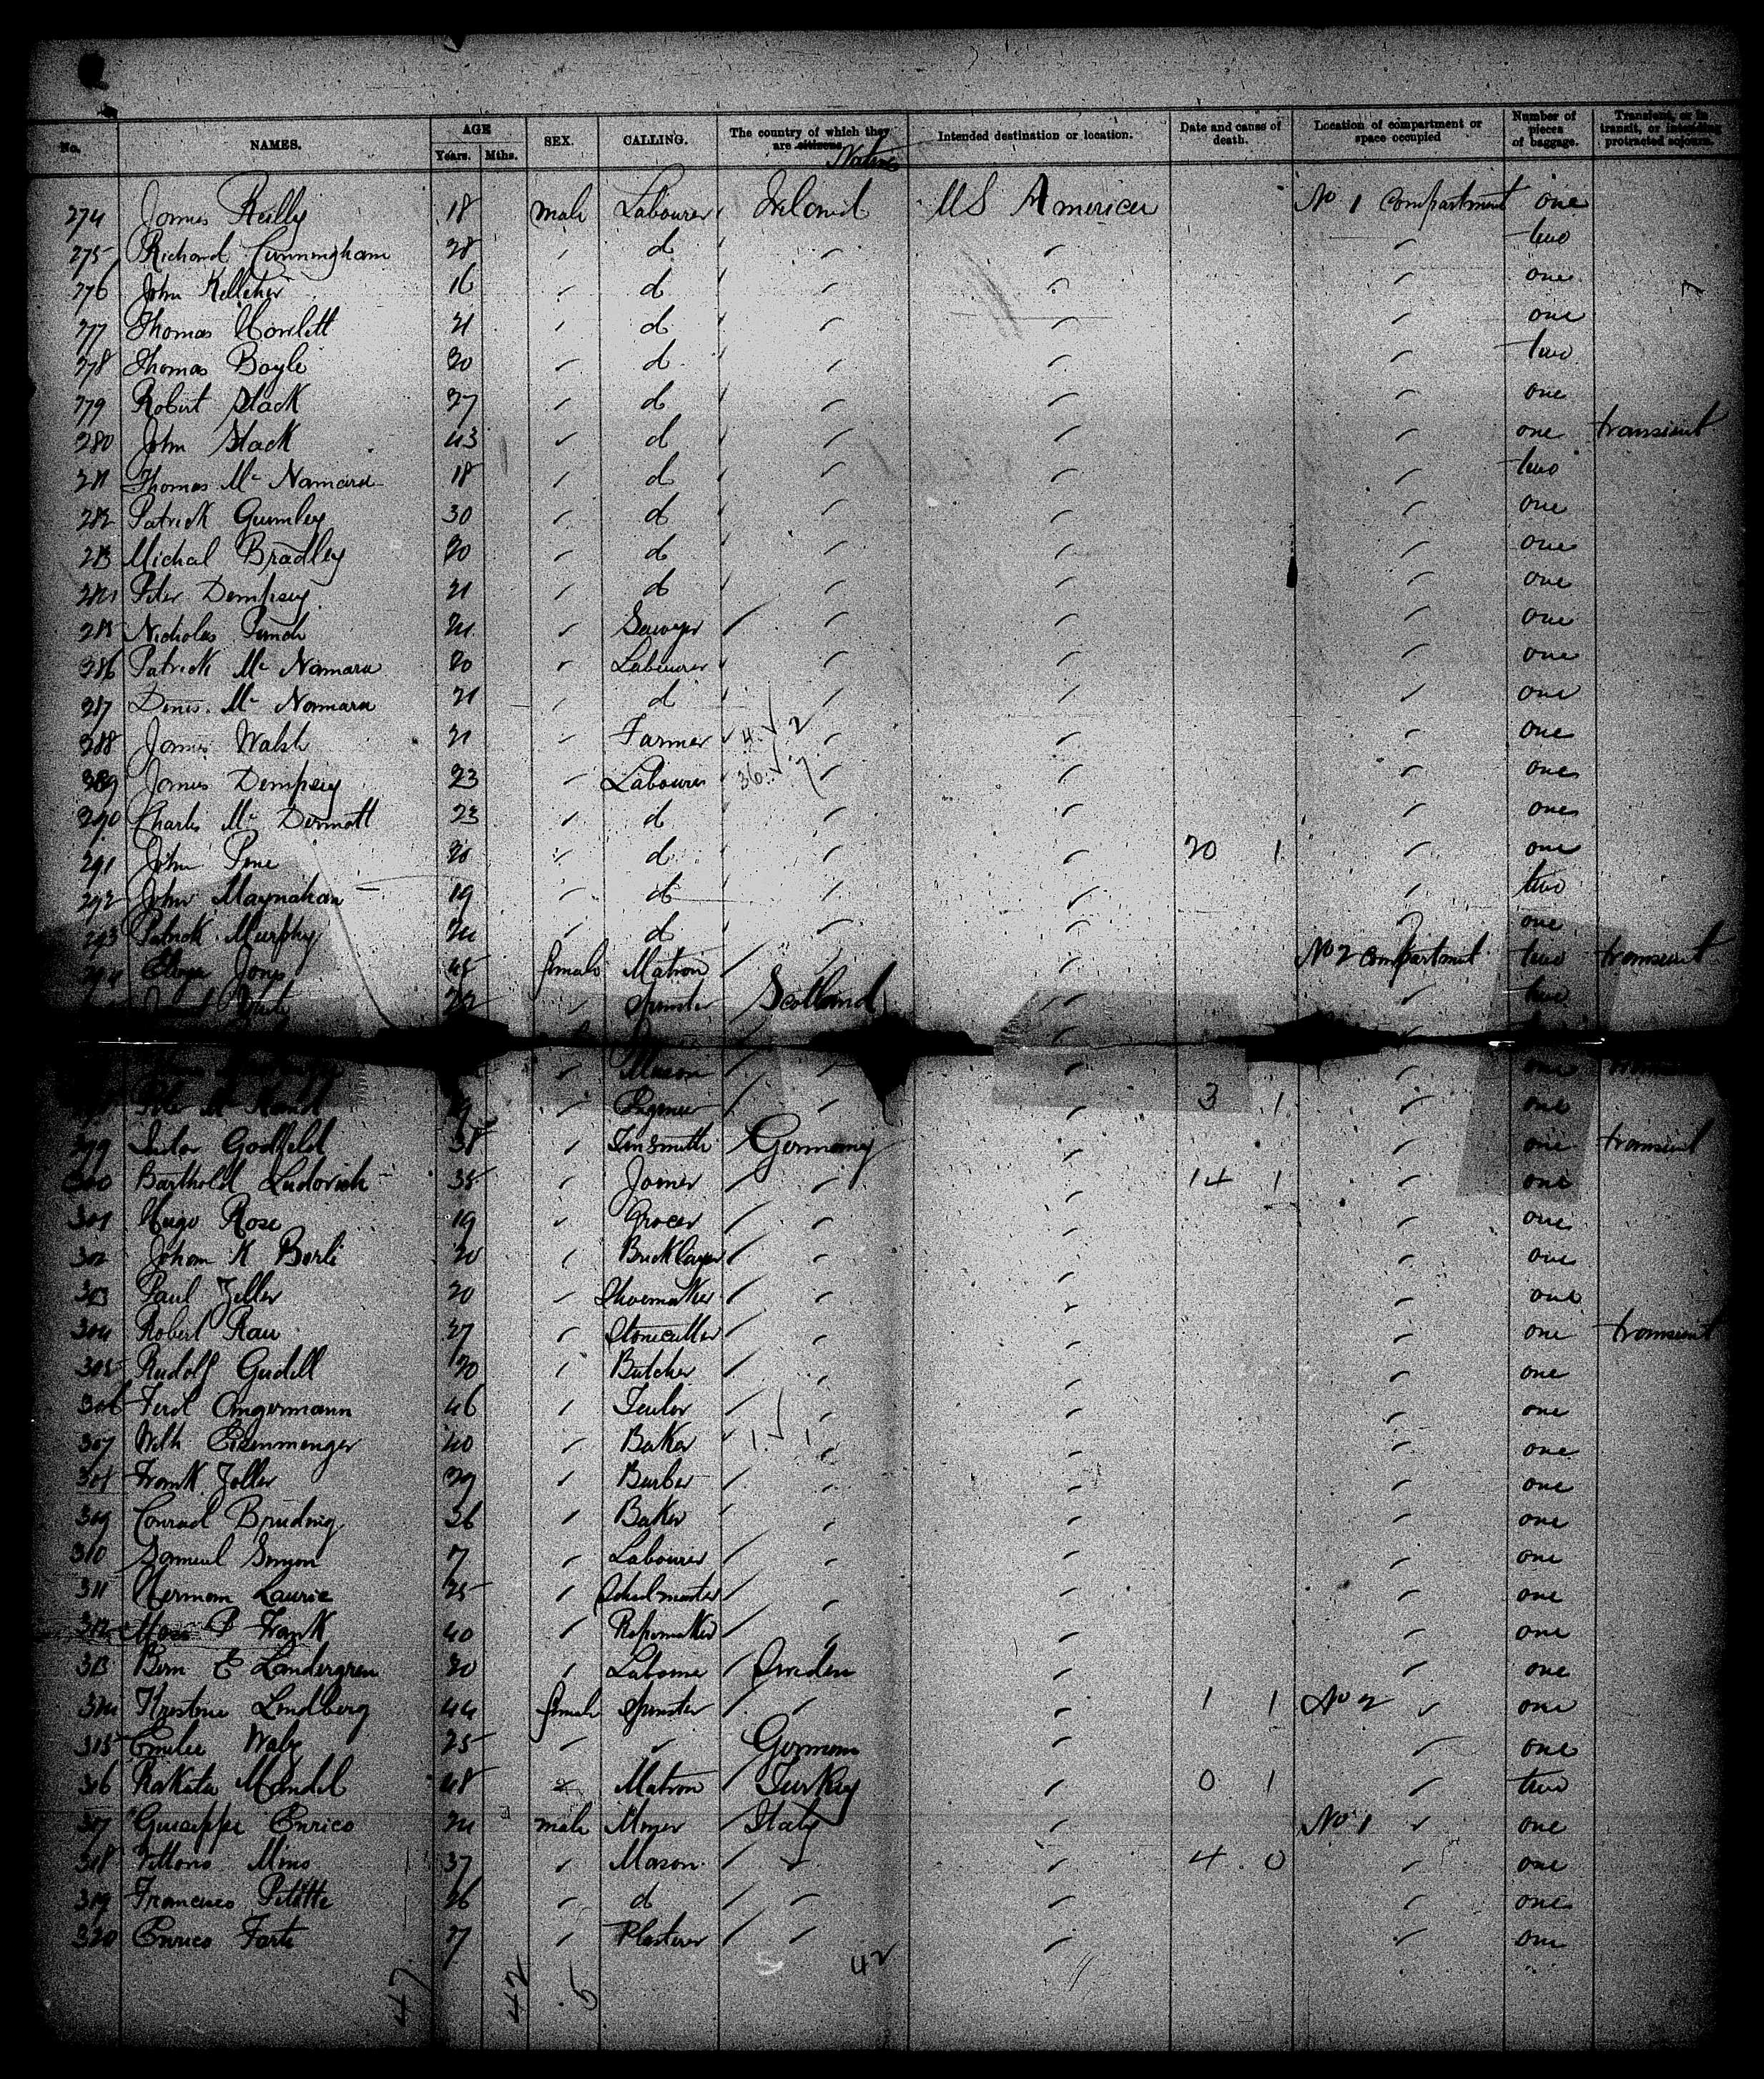 No. NAMES. AGE SEX. CALLING. The country of which they are citizens. Intended destination or location. Date and cause of death. Location of compartment or space occupied Number of pieces of baggage. Transient, or in transit, or intending protracted sojourn.
Years. Mths. Natives
274 James Reilly 18 male Labourer Ireland US America No 1 compartment one
275 Richard Cunningham 28 d two
276 John Kelleher 16 d one
277 Thomas Howlett 21 d one
278 Thomas Boyle 20 d two
279 Robert Slack 27 d one
280 John Slack 43 d one transient
281 Thomas Mc Namara 18 d two
282 Patrick Gumley 30 d one
283 Michal Bradley 20 d one
284 Peter Dempsey 21 d one
285 Nicholas 24 Sawyer one
286 Patrick Mc Namara 20 Labourer one
287 Denis Mc Namara 21 d one
288 James Walsh 21 Farmer 4 2 one
289 James Dempsey 23 Labourer 36 7 one
290 Charles Mc Dermott 23 d one
291 John 20 d 20 1 one
292 John Maynahan 19 d two
293 Patrick Murphy 24 d one
294 Jones 45 female Matron No 2 compartment two transient
22 Spinster Scotland two
Mason one
Engineer 3 1 one
299 Godfeld 38 Tinsmith Germany one transient
300 Barthold Ludovich 35 Joiner 14 1 one
301 Hugo Rose 19 Grocer one
302 Johann K 20 Bricklayer one
303 Paul Zeller 20 Shoemaker one
304 Robert Rau 27 Stonecutter one transient
305 Rudolf Gudell 20 Butcher one
306 Ferd Angermann 46 one
307 Wilh Eisenmenger 40 Baker 1 1 one
308 Frank Zeller 29 Barber one
309 Conrad 36 Baker one
310 Samuel Simon Labourer one
311 Herman Laurie 25 Schoolmaster one
312 Frank 40 Ropemaker one
313 E Landergren 20 Labourer Sweden one
314 Kristine Lindberg 44 female Spinster 1 1 No 2 one
315 Emilie Walz 25 German one
316 Mendel 48 Matron Turkey 0 1 two
317 Guiseppe Enrico 24 male Miner Italy No 1 one
318 Vittorio 37 Mason 4 0 one
319 Francisco 26 d one
320 Enrico 27 Plasterer one
47 42 5 5 42